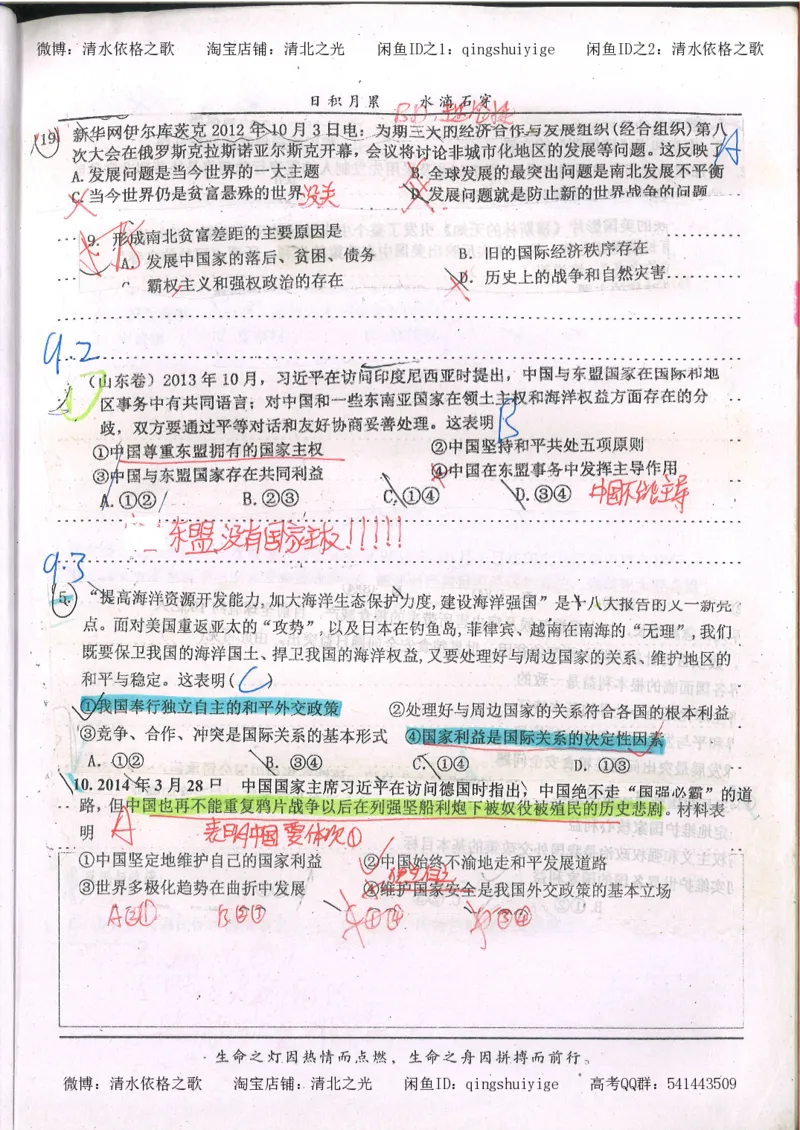 微博：清水依格之歌 淘宝店铺：清北之光 闲鱼ID之1：qingshuiyige 闲鱼ID之2：清水依格之歌
日积月累 水滴石穿
19 新华网伊尔库茨克 2012 年 10 月 3 日电：为期三天的经济合作与发展组织(经合组织)第八
次大会在俄罗斯克拉斯诺亚尔斯克开幕，会议将讨论非城市化地区的发展等问题。这反映了 A
A. 发展问题是当今世界的一大主题 B. 全球发展的最突出问题是南北发展不平衡
C. 当今世界仍是贫富悬殊的世界 没关 D. 发展问题就是防止新的世界战争的问题
9. 形成南北贫富差距的主要原因是
A. 发展中国家的落后、贫困、债务 B. 旧的国际经济秩序存在
C. 霸权主义和强权政治的存在 D. 历史上的战争和自然灾害
9.2
（山东卷）2013 年 10 月，习近平在访问印度尼西亚时提出，中国与东盟国家在国际和地
区事务中有共同语言；对中国和一些东南亚国家在领土主权和海洋权益方面存在的分
歧，双方要通过平等对话和友好协商妥善处理。这表明 B
①中国尊重东盟拥有的国家主权 ②中国坚持和平共处五项原则
③中国与东盟国家存在共同利益 ④中国在东盟事务中发挥主导作用
A. ①② B. ②③ C. ①④ D. ③④ 中国不能主导
东盟没有国家主权!!!!!
9.3
5. “提高海洋资源开发能力,加大海洋生态保护力度,建设海洋强国”是十八大报告的又一新亮
点。面对美国重返亚太的“攻势”，以及日本在钓鱼岛,菲律宾、越南在南海的“无理”,我们
既要保卫我国的海洋国土、捍卫我国的海洋权益,又要处理好与周边国家的关系、维护地区的
和平与稳定。这表明( C )
①我国奉行独立自主的和平外交政策 ②处理好与周边国家的关系符合各国的根本利益
③竞争、合作、冲突是国际关系的基本形式 ④国家利益是国际关系的决定性因素
A. ①② B. ③④ C. ①④ D. ①③
10. 2014 年 3 月 28 日 中国国家主席习近平在访问德国时指出，中国绝不走“国强必霸”的道
路，但中国也再不能重复鸦片战争以后在列强坚船利炮下被奴役被殖民的历史悲剧。材料表
明 A
①中国坚定地维护自己的国家利益 ②中国始终不渝地走和平发展道路
③世界多极化趋势在曲折中发展 ④维护国家安全是我国外交政策的基本立场
A②① B②③ C①④ D③④
生命之灯因热情而点燃，生命之舟因拼搏而前行。
微博：清水依格之歌 淘宝店铺：清北之光 闲鱼ID：qingshuiyige 高考QQ群：541443509